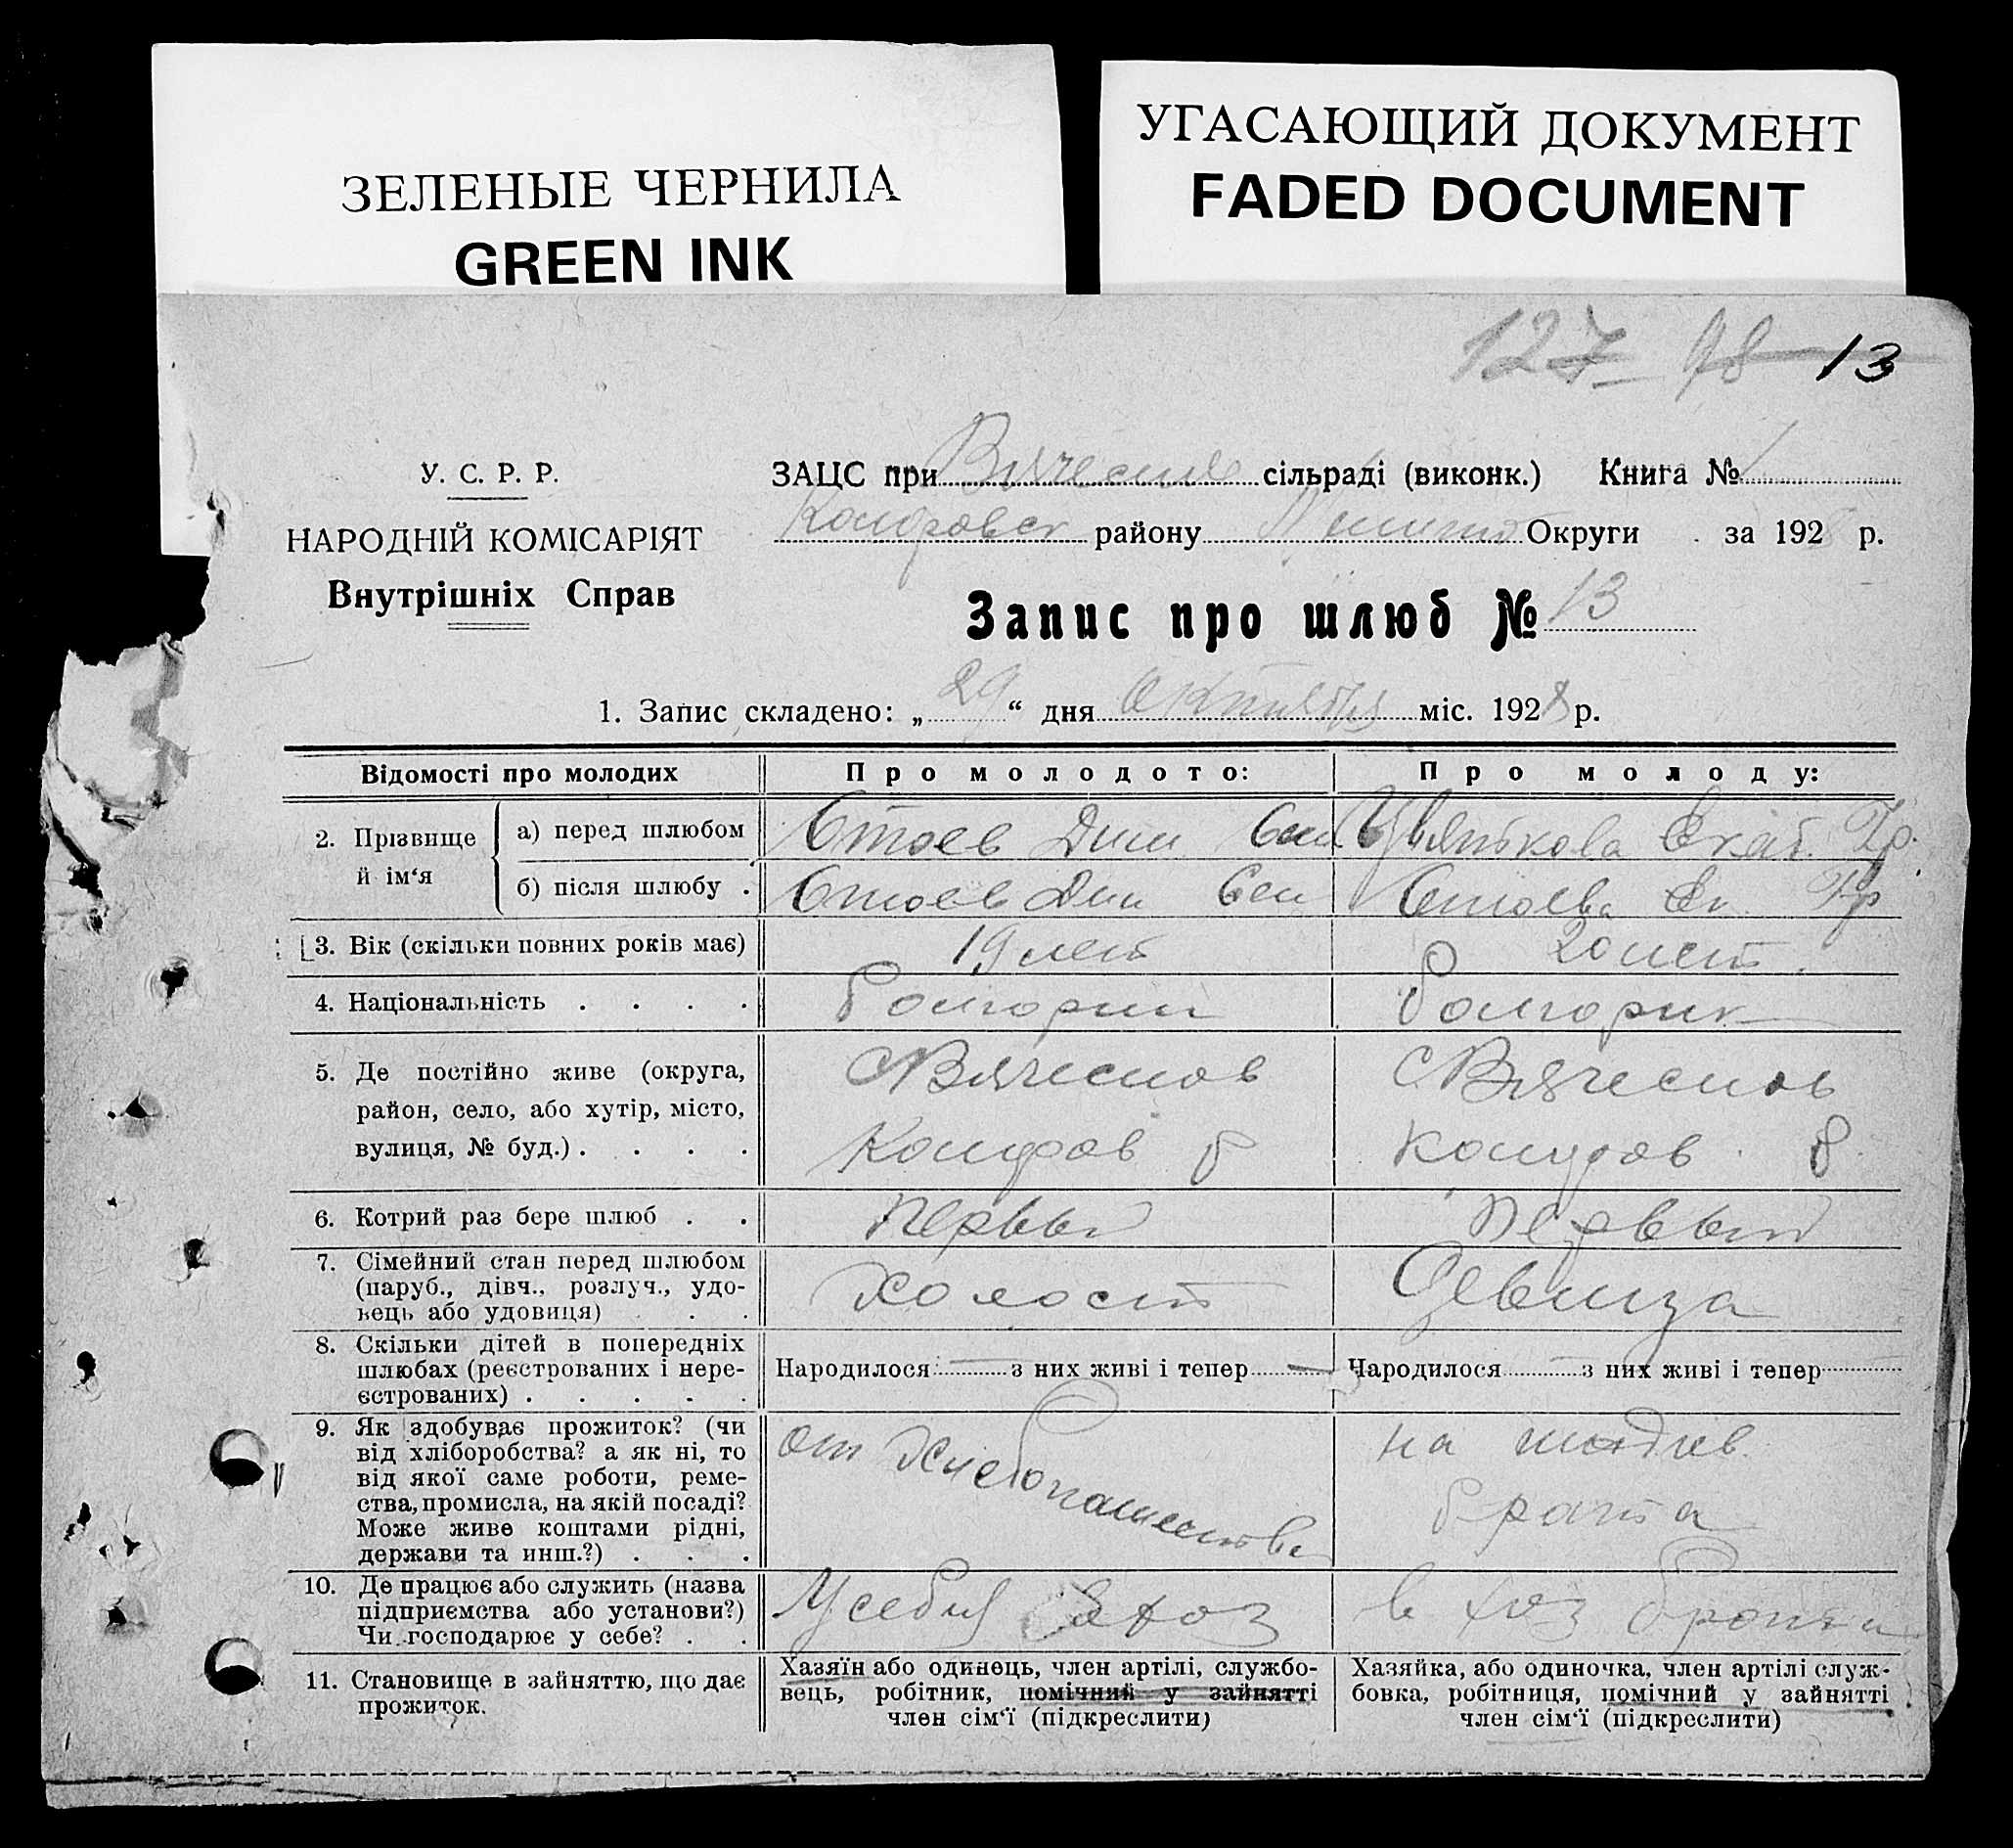 ЗЕЛЕНЫЕ ЧЕРНИЛА
GREEN INK
УГАСАЮЩИЙ ДОКУМЕНТ
FADED DOCUMENT
127 98 13
У. С. Р. Р.
НАРОДНІЙ КОМІСАРІЯТ
Внутрішніх Справ
ЗАЦС при сільраді (виконк.) Книга № 1
району Округи за 192 р.
Запис про шлюб № 13
1. Запис складено: „ 29 “ дня Октября міс. 1928 р.
Відомості про молодих Про молодото: Про молоду:
2. Прізвище й ім‘я
а) перед шлюбом Стоев Дим Сем Цвяткова Екат. Гр.
б) після шлюбу . Стоев Дим Сем Стоева Ек Гр
3. Вік (скільки повних років має) 19 лет 20 лет.
4. Національність . . . . болгорин болгорик
5. Де постійно живе (округа, С Вячеслов С Вячеслов
район, село, або хутір, місто,
вулиця, № буд.) . . . . б б
6. Котрий раз бере шлюб . . первый первый
7. Сімейний стан перед шлюбом
(паруб., дівч., розлуч., удо- холост девица
вець або удовиця) . . .
8. Скільки дітей в попередніх
шлюбах (реєстрованих і нере- Народилося — з них живі і тепер — Народилося — з них живі і тепер
єстрованих) . . . . .
9. Як здобуває прожиток? (чи от Хлебопашества на иждив.
від хліборобства? а як ні, то
від якої саме роботи, реме- брата
ства, промисла, на якій посаді?
Може живе коштами рідні,
держави та инш.?) . . .
10. Де працює або служить (назва
підприємства або установи?) У себя хоз в хоз брата
Чи господарює у себе? . .
11. Становище в зайняттю, що дає
прожиток.
Хазяїн або одинець, член артілі, службо-
вець, робітник, помічний у зайнятті
член сім‘ї (підкреслити)
Хазяйка, або одиночка, член артілі служ-
бовка, робітниця, помічний у зайнятті
член сім‘ї (підкреслити)